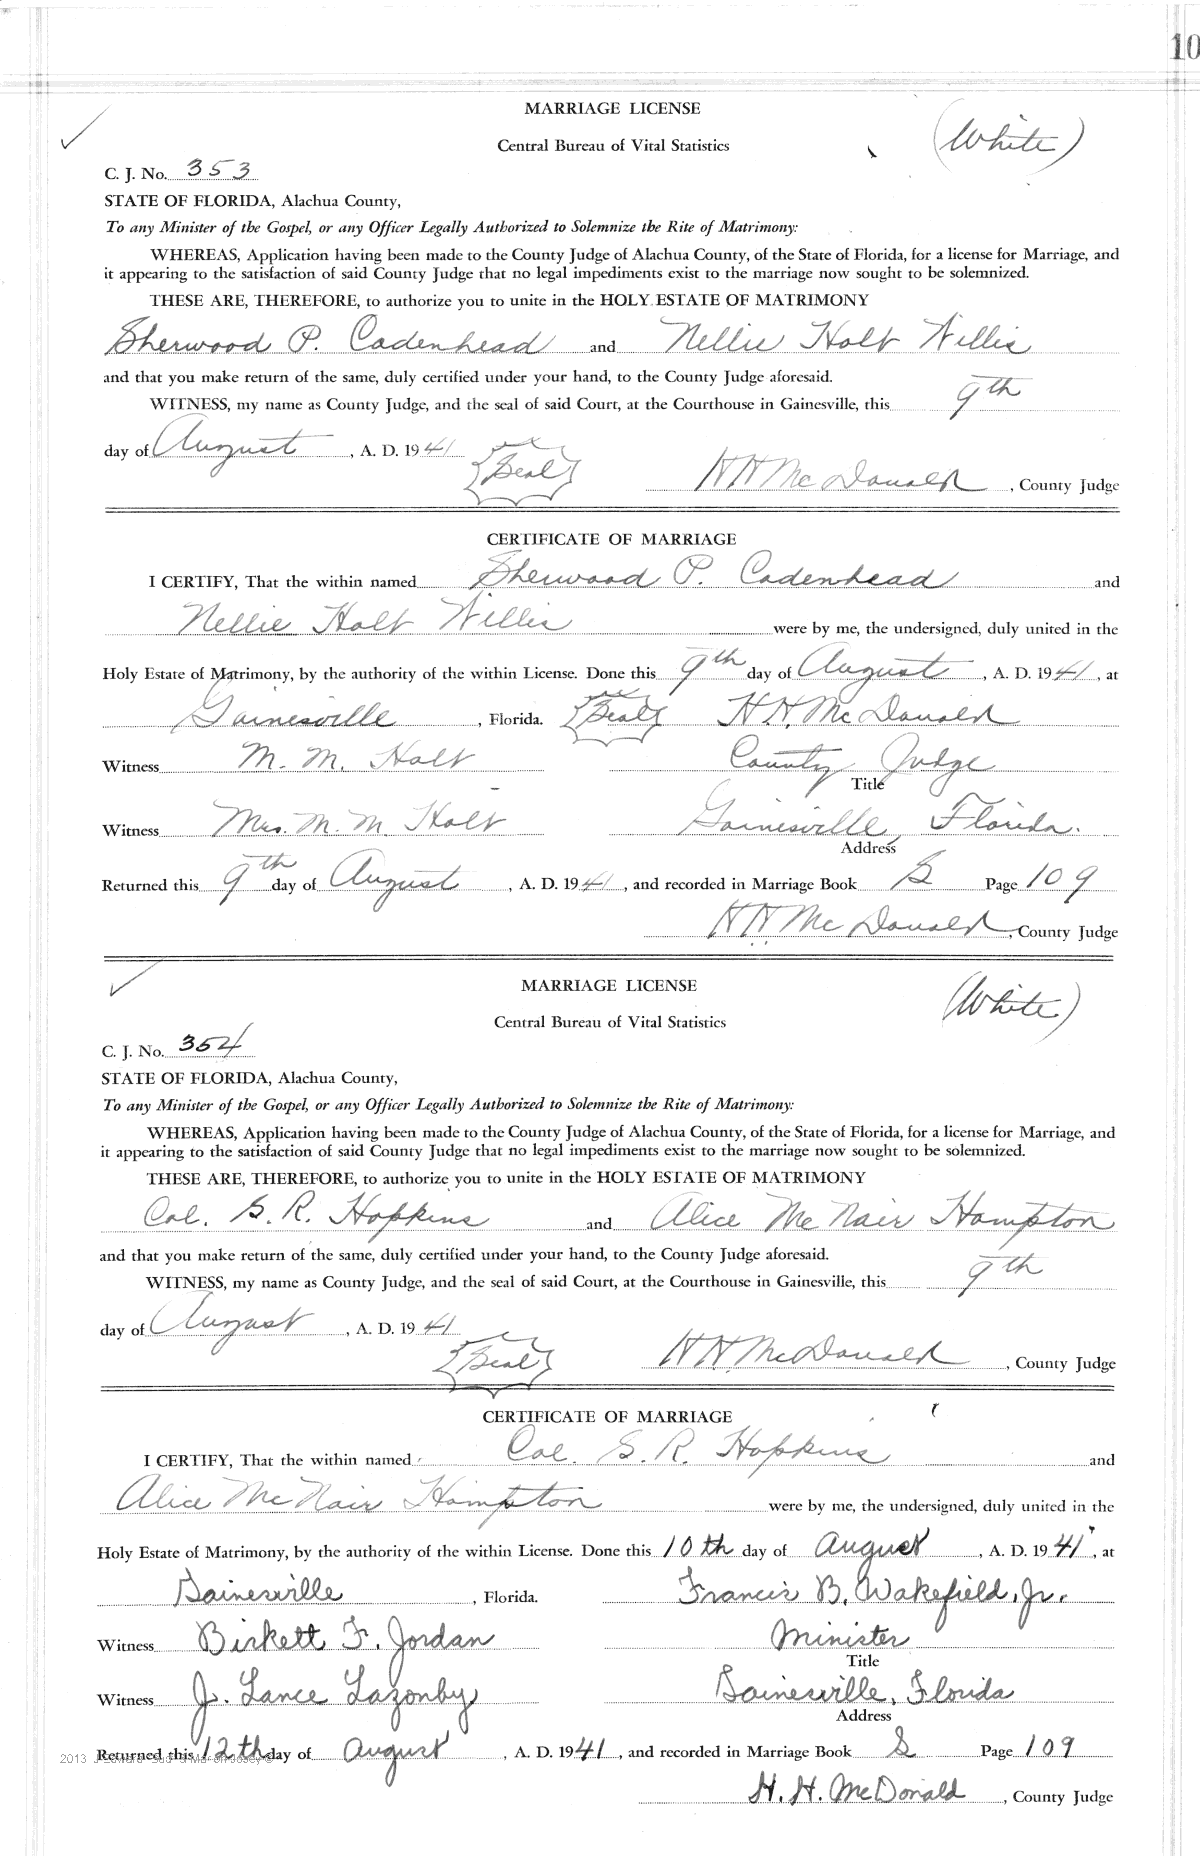 10
MARRIAGE LICENSE
(White)
Central Bureau of Vital Statistics
C. J. No. 353
STATE OF FLORIDA, Alachua County,
To any Minister of the Gospel, or any Officer Legally Authorized to Solemnize the Rite of Matrimony:
WHEREAS, Application having been made to the County Judge of Alachua County, of the State of Florida, for a license for Marriage, and
it appearing to the satisfaction of said County Judge that no legal impediments exist to the marriage now sought to be solemnized.
THESE ARE, THEREFORE, to authorize you to unite in the HOLY ESTATE OF MATRIMONY
Sherwood P. Cadenhead and Nellie Holt Willis
and that you make return of the same, duly certified under your hand, to the County Judge aforesaid.
WITNESS, my name as County Judge, and the seal of said Court, at the Courthouse in Gainesville, this 9th
day of August, A. D. 1941 Seal
H H McDonald, County Judge
CERTIFICATE OF MARRIAGE
I CERTIFY, That the within named Sherwood P. Cadenhead and
Nellie Holt Willis were by me, the undersigned, duly united in the
Holy Estate of Matrimony, by the authority of the within License. Done this 9th day of August, A. D. 1941, at
Gainesville, Florida. Seal H. H. McDonald
Witness M. M. Holt County Judge
Title
Witness Mrs. M. M. Holt Gainesville, Florida.
Address
Returned this 9th day of August, A. D. 1941, and recorded in Marriage Book S Page 109
H H McDonald, County Judge
MARRIAGE LICENSE
(White)
Central Bureau of Vital Statistics
C. J. No. 354
STATE OF FLORIDA, Alachua County,
To any Minister of the Gospel, or any Officer Legally Authorized to Solemnize the Rite of Matrimony:
WHEREAS, Application having been made to the County Judge of Alachua County, of the State of Florida, for a license for Marriage, and
it appearing to the satisfaction of said County Judge that no legal impediments exist to the marriage now sought to be solemnized.
THESE ARE, THEREFORE, to authorize you to unite in the HOLY ESTATE OF MATRIMONY
Col. S. R. Hopkins and Alice McNair Hampton
and that you make return of the same, duly certified under your hand, to the County Judge aforesaid.
WITNESS, my name as County Judge, and the seal of said Court, at the Courthouse in Gainesville, this 9th
day of August, A. D. 1941
Seal H H McDonald, County Judge
CERTIFICATE OF MARRIAGE
I CERTIFY, That the within named Col. S. R. Hopkins and
Alice McNair Hampton were by me, the undersigned, duly united in the
Holy Estate of Matrimony, by the authority of the within License. Done this 10th day of August, A. D. 1941, at
Gainesville, Florida. Francis B. Wakefield, Jr.
Witness Birkett F. Jordan Minister
Title
Witness J. Lance Lazonby Gainesville, Florida
Address
2013
Returned this 12th day of August, A. D. 1941, and recorded in Marriage Book S Page 109
H. H. McDonald, County Judge